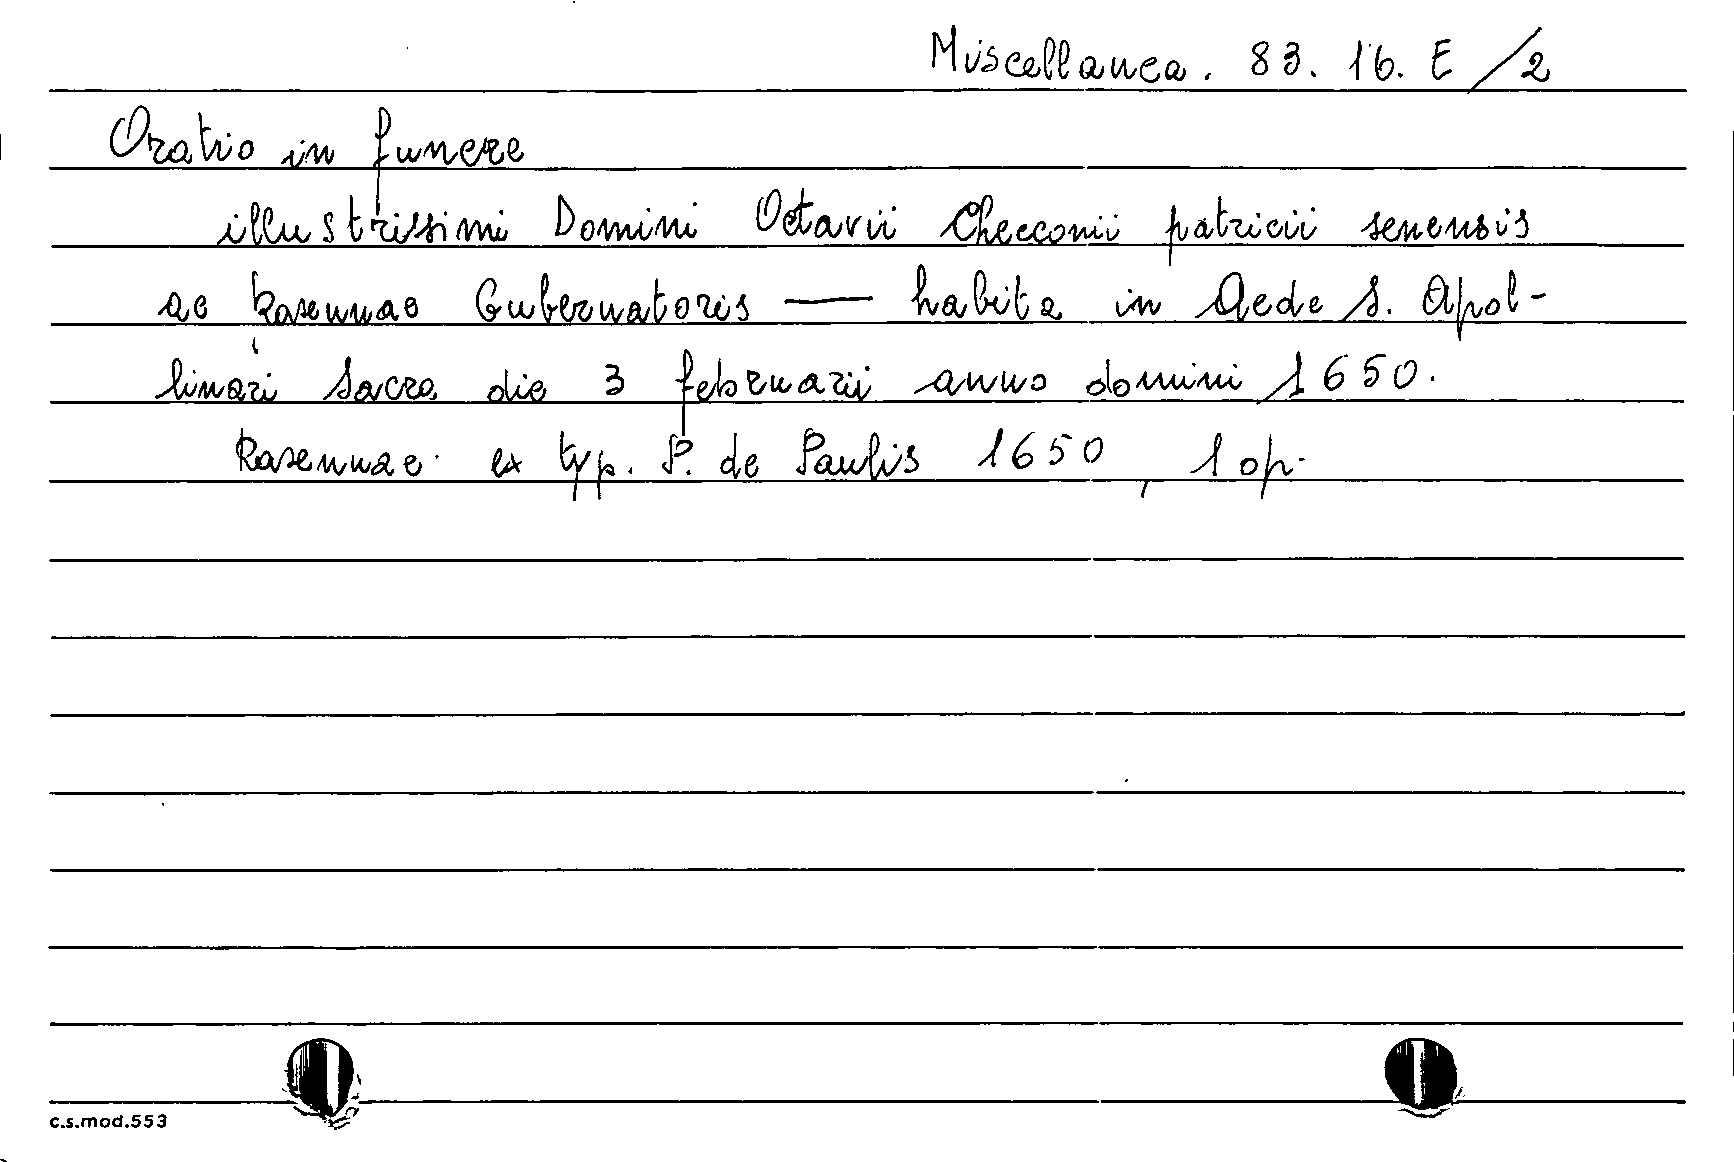 Miscellanea. 83. 16. E /2
Oratio in funere
illustrissimi Domini Octavii Checconii patricii senensis
ac Ravennae Gubernatoris — habita in Aede S. Apol-
linari Sacra die 3 februarii anno domini 1650.
Ravennae ex typ. P. de Paulis 1650, 1 op.
c.s.mod.553